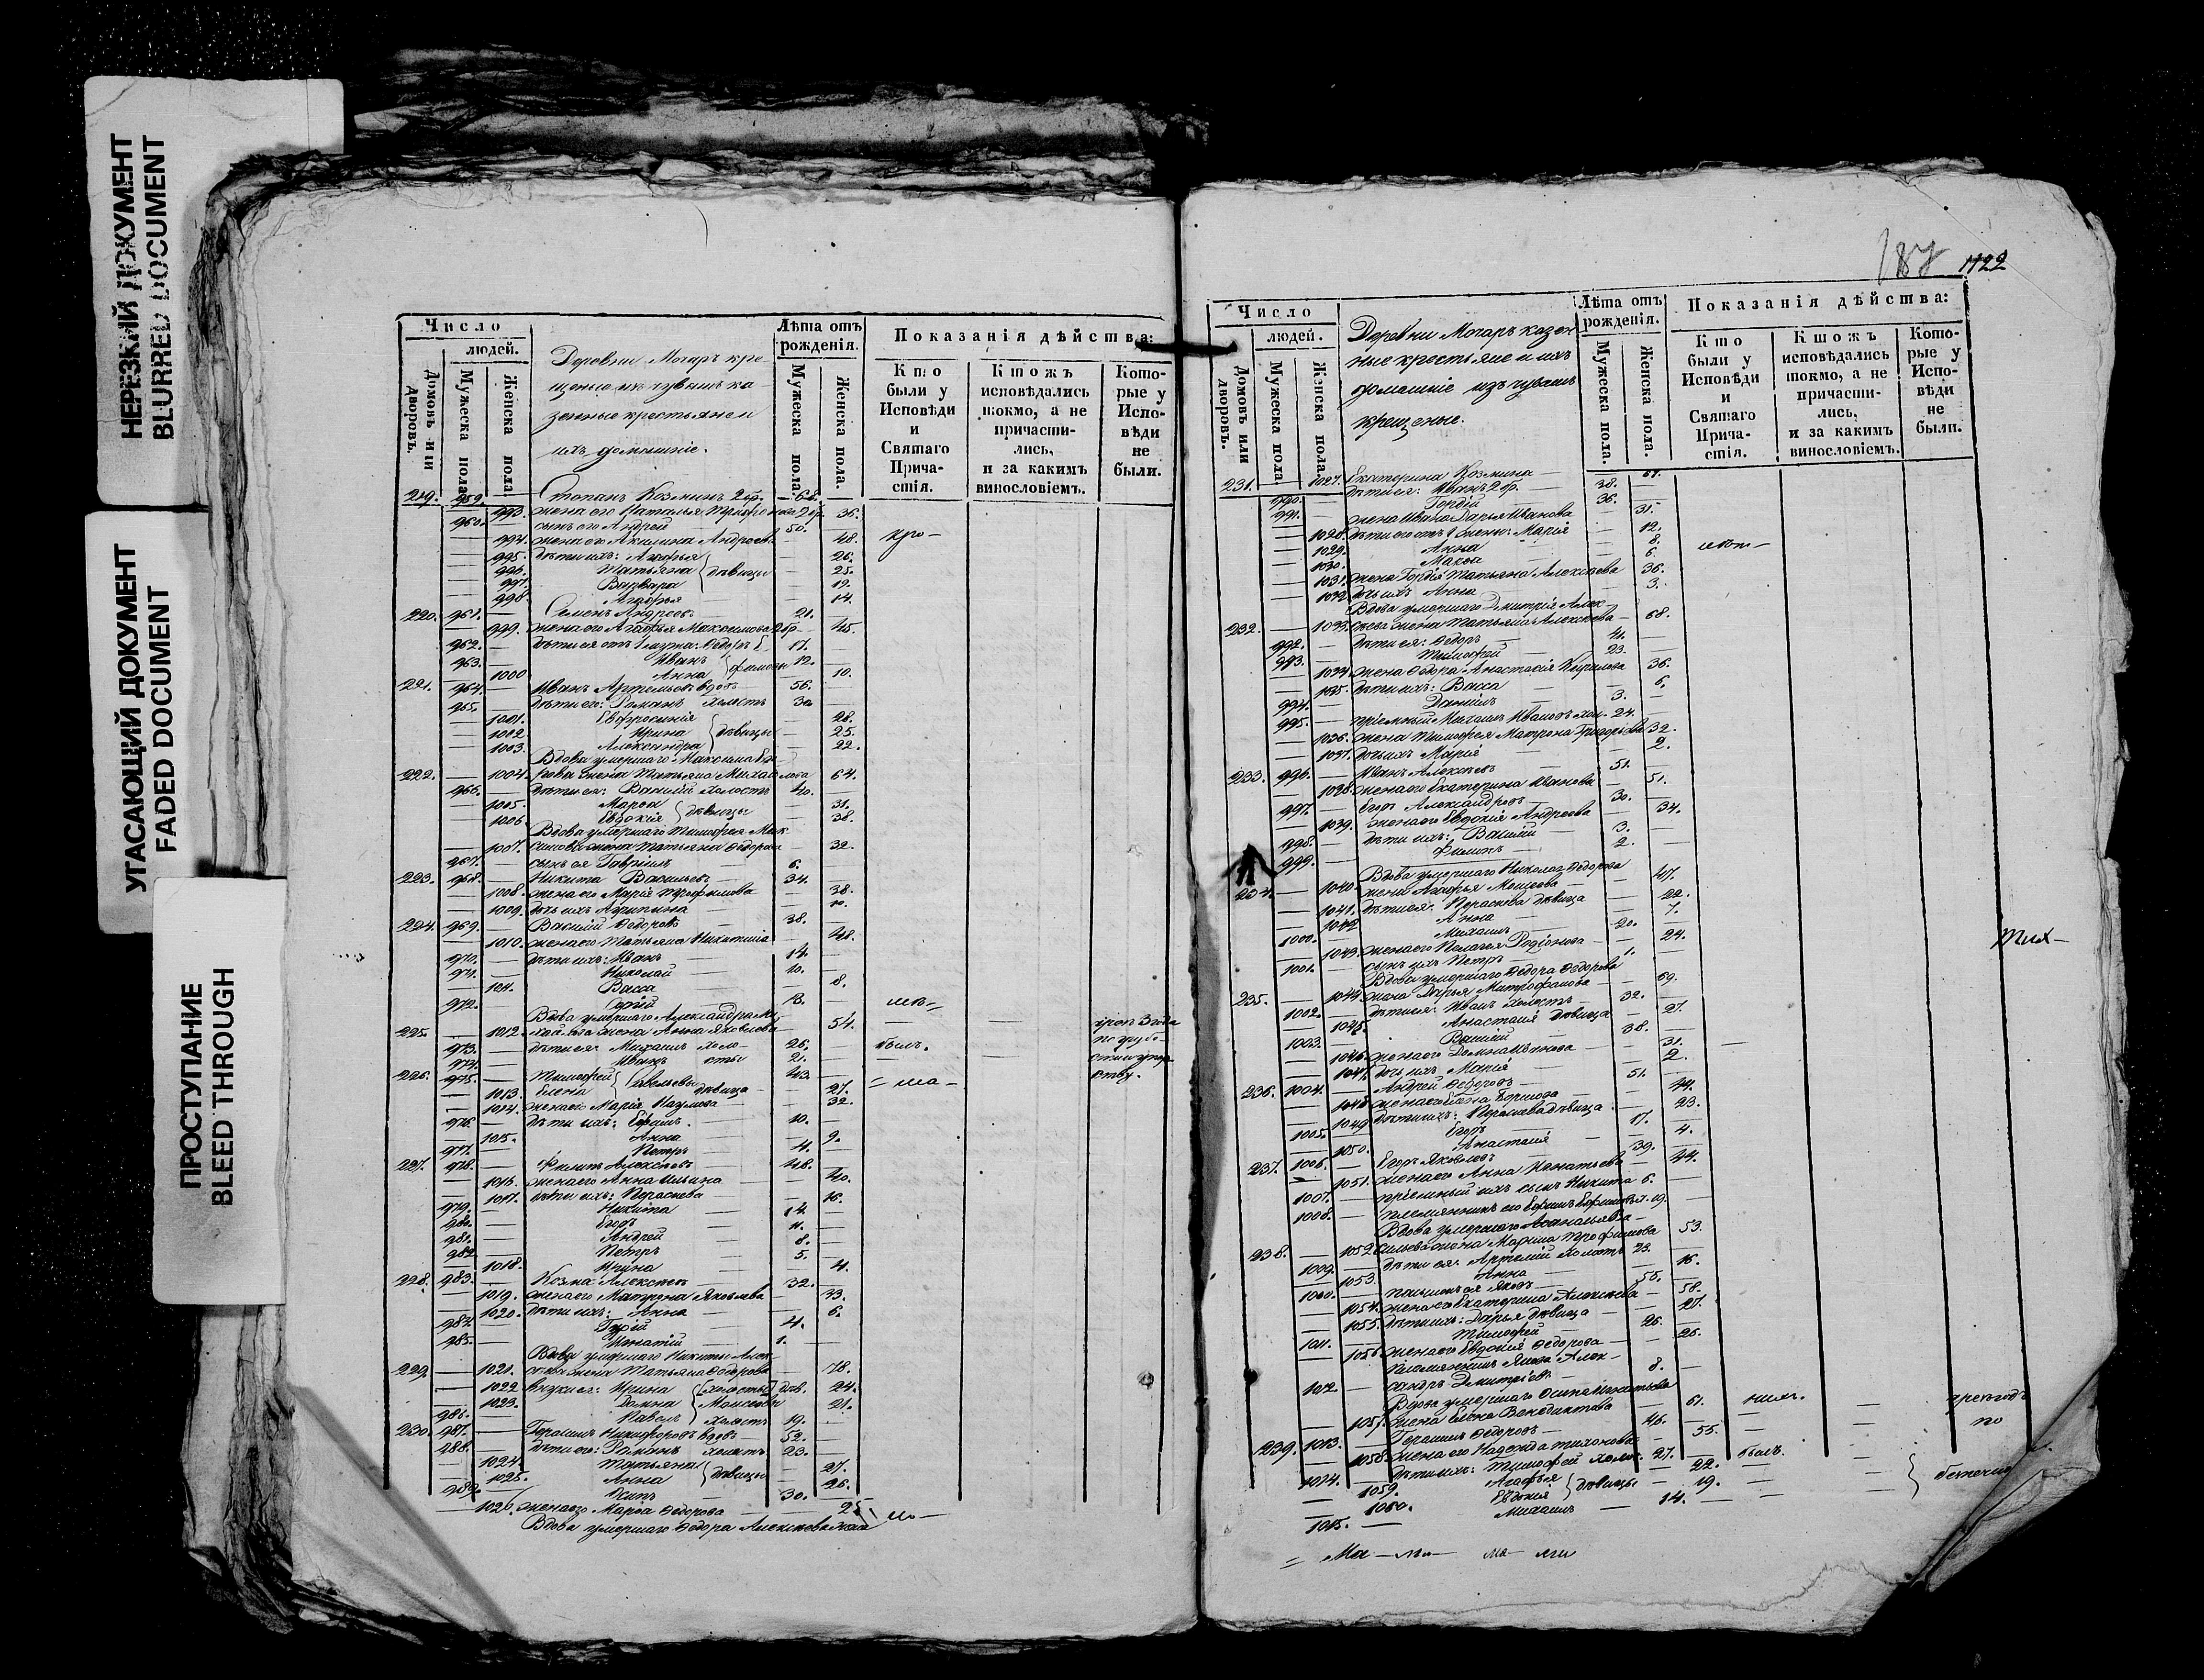 НЕРЕЗКИЙ ДОКУМЕНТ
BLURRED DOCUMENT
УГАСАЮЩИЙ ДОКУМЕНТ
FADED DOCUMENT
ПРОСТУПАНИЕ
BLEED THROUGH
Число
людей.
Домовъ или дворовъ.
Мужеска пола
Женска пола
Деревни Мочаръ кре-
щеные изъ чувашъ ка-
зенные крестьяне и
ихъ домашніе.
Лѣта отъ рожденія.
Мужеска пола.
Женска пола.
Показанія дѣйства:
Кто были у Исповѣди и Святаго Прича-стія.
Ктожъ исповѣдались токмо, а не причасти-лись, и за какимъ винословіемъ.
Кото-рые у Испо-вѣди не были.
219. 959. — Степанъ Козминъ 2 бр. — 68. —
— 993. жена его Наталья 2 бр. — 36.
960. — сынъ его Андрей 50. —
— 994. жена его Акилина Андреева — 48.
— 995. дѣти ихъ: Агафья — 26.
— 996. Татьяна дѣвицы — 25.
— 997. Варвара — 19.
— 998. Агафья — 14.
220. 961. — Семенъ Андреевъ 21. —
— 999. жена его Агафья Максимова 2 бр. — 45.
962. — дѣти ея отъ 1 мужа: Ѳедоръ 17. —
963. — Иванъ 12. —
— 1000 Анна — 10.
221. 964. — Иванъ Артемьевъ вдовъ 56. —
965. — дѣти его: Романъ холостъ 30. —
— 1001. Евфросинія — 28.
— 1002 Ирина дѣвицы — 25.
— 1003. Александра — 22.
Вдова умершаго Максима
222. — 1004. жена Татьяна Михайлова 64.
966. — дѣти ея: Василій холостъ 40. —
— 1005. Марѳа дѣвицы — 31.
— 1006 Евдокія — 38.
Вдова умершаго Тимофея Мак-
— 1007. симова жена Татьяна Ѳедорова — 32.
967. — сынъ ея Гавріилъ 6. —
223. 968. — Никита Васильевъ 34. —
— 1008. жена его Марія Трофимова — 38.
— 1009. дочь ихъ Агрипина — 10.
224. 969. — Василій Ѳедоровъ 38. —
— 1010. жена его Татьяна Никитина — 48.
970. — дѣти ихъ: Иванъ 14. —
971. — Николай 10. —
— 1011. Васса — 8.
972. —
Вдова умершаго Александра Ми-
225. — 1012. хайлова жена Анна Яковлева — 54.
973. — дѣти ея: Михаилъ холо- 26. — былъ.
974. — Иванъ сты 21. —
226. 975. — Тимофей Савельевы 43. —
— 1013. Елена дѣвица — 27.
— 1014. жена его Марія Наумова — 32.
976. — дѣти ихъ: Ефимъ. 10. —
— 1015. Анна — 9.
977. — Петръ 4. —
227. 978. — Филипъ Алексѣевъ 48. —
— 1016. жена его Анна Ильина — 40.
— 1017. дѣти ихъ: Параскева — 16.
979. — Никита 14. —
980. — Егоръ 11. —
981. — Андрей 8. —
982. — Петръ 5. —
— 1018. Ирина — 4.
228. 983. — Козма Алексѣевъ 32. —
— 1019. жена его Матрона Яковлева — 33.
— 1020. дѣти ихъ: Анна — 6.
984. — Гурій 4. —
985. — Игнатій 1. —
Вдова умершаго Никиты Алек-
229. — 1021. сѣева жена Татьяна Ѳедорова — 78.
— 1022 внуки ея: Ирина — 24.
— 1023. Домна Моисеевы — 21.
986. — Павелъ холостъ 19. —
230. 987. — Герасимъ Никифоровъ вдовъ 52. —
988. — дѣти его: Романъ холостъ 23. —
— 1024. Татьяна — 27.
— 1025. Анна дѣвицы — 26.
989. — Осипъ 30. —
— 1026. жена его Марѳа Ѳедорова — 25.
Вдова умершаго Ѳедора Алексѣева жена
187 1122
Число
людей.
Домовъ или дворовъ.
Мужеска пола
Женска пола.
Деревни Мочаръ казен-
ные крестьяне и ихъ
домашніе изъ чувашъ
крещеные.
Лѣта отъ рожденія.
Мужеска пола.
Женска пола.
Показанія дѣйства:
Кто были у Исповѣди и Святаго Прича-стія.
Ктожъ исповѣдались токмо, а не причасти-лись, и за какимъ винословіемъ.
Кото-рые у Испо-вѣди не были.
231. — 1027. Екатерина Козмина — 61.
990. — дѣти ея: Иванъ 2 бр. 38. —
991. — Гордій 36. —
жена Ивана Дарья Иванова — 31.
— 1028. дѣти его отъ 1 жены: Марія — 12.
— 1029. Анна — 8.
— 1030. — 6.
— 1031. жена Гордія Татьяна Алексѣева 36.
— 1032 дочь ихъ Анна — 3.
Вдова умершаго Дмитрія Алек-
232. — 1033. сѣева жена Татьяна Алексѣева — 68.
992. — дѣти ея: Ѳедоръ 41. —
993. — Тимофей 23. —
— 1034. жена Ѳедора Анастасія Кирилова 36.
— 1035. дѣти ихъ: Васса — 6.
994. — Даніилъ 3. —
995. — пріемный Михаилъ Ивановъ хол. 24. —
— 1036. жена Тимофея Матрона Григорьева 32.
— 1037. дочь ихъ Марія — 2.
233. 996. — Иванъ Алексѣевъ 51. —
— 1038. жена его Екатерина Иванова — 51.
997. — Егоръ Александровъ 30. —
— 1039. жена его Евдокія Андреева — 34.
998. — дѣти ихъ: Василій 3. —
999. — Филипъ 2. —
Вдова умершаго Николая Ѳедорова
234. — 1040. жена Агафья Моисеева — 47.
— 1041. дѣти ея: Параскева дѣвица — 22.
— 1042 Анна — 7.
1000. — Михаилъ 20. —
— 1043. жена его Пелагея Родіонова — 24.
1001. — сынъ ихъ Петръ 1. —
Вдова умершаго Ѳедора Ѳедорова
235. — 1044. жена Дарья Митрофанова — 69.
1002. — дѣти ея: Иванъ холостъ 32. —
— 1045. Анастасія дѣвица — 27.
1003. — Василій 38. —
— 1046. жена его Домна — 31.
— 1047. дочь ихъ Марія — 2.
236. 1004. — Андрей Ѳедоровъ 51. —
— 1048 жена его Елена Егорова — 44.
— 1049 дѣти ихъ: Параскева дѣвица — 23.
1005. — Егоръ 17. —
— 1050. Анастасія — 4.
237. 1006. — Егоръ Яковлевъ 39. —
— 1051. жена его Анна Игнатьева — 44.
1007. — пріемный ихъ сынъ Никита 6. —
1008. — племянникъ его Ефимъ Ефимовъ х. 19. —
Вдова умершаго Аѳанасья
238. — 1052 жена Марина Трофимова 53.
1009. — дѣти ея: Артемій холостъ 23. —
— 1053. Анна — 16.
1010. — Яковъ 55. —
— 1054. жена его Екатерина Алексѣева — 58.
— 1055. дѣти ихъ: Дарья дѣвица — 27.
1011. — Тимофей 26. —
— 1056 жена его Евдокія Ѳедорова — 26.
племянникъ Якова Алек-
1012. — сандръ Дмитріевъ 8. —
Вдова умершаго Осипа Игнатьева
— 1057. жена Елена Венедиктова — 61.
239. 1013. — Герасимъ Ѳедоровъ 46. —
— 1058. жена его Надежда Тихонова — 55.
1014. — дѣти ихъ: Тимофей холос. 27. — былъ.
— 1059. Агафья — 22.
— 1060. Евдокія дѣвицы — 19.
1015. — Михаилъ 14. —